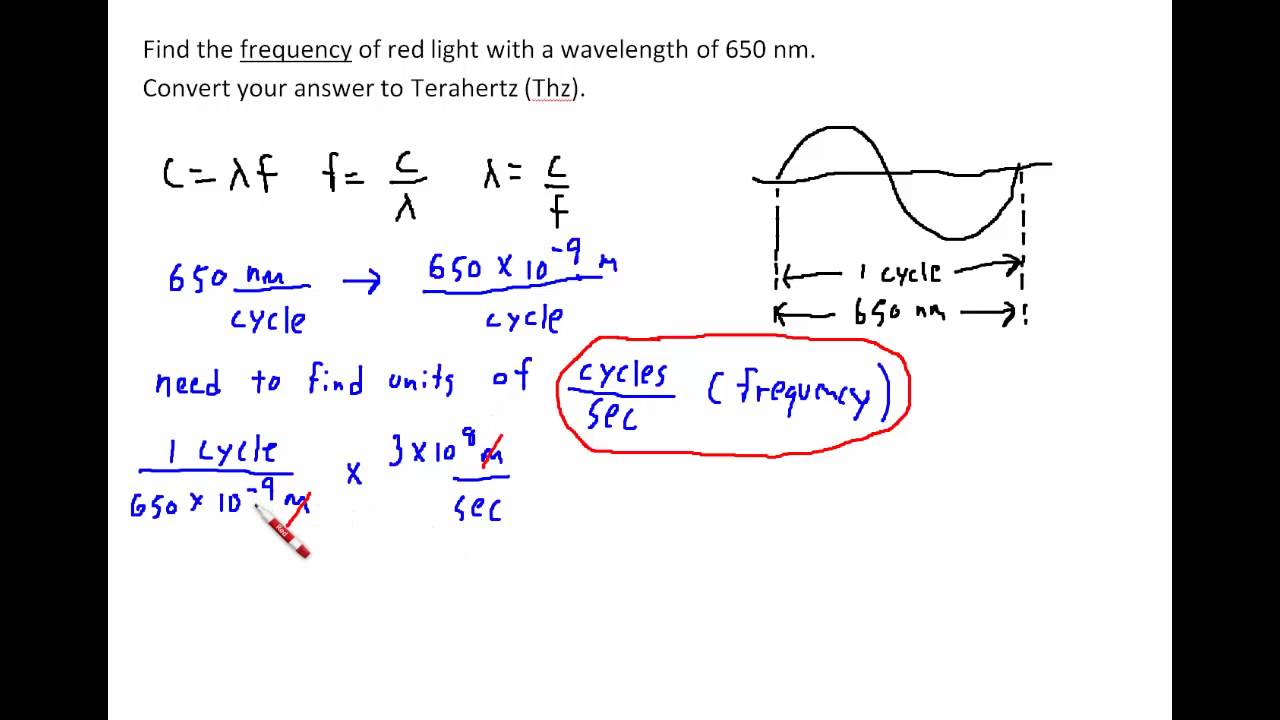 Find the frequency of red light with a wavelength of 650 nm.
Convert your answer to Terahertz (Thz).
c = λf f = c/λ λ = c/f
650 nm/cycle → 650 × 10⁻⁹ m/cycle
1 cycle
650 nm
need to find units of cycles/sec (frequency)
1 cycle/650 × 10⁻⁹ m × 3 × 10⁸ m/sec
Red